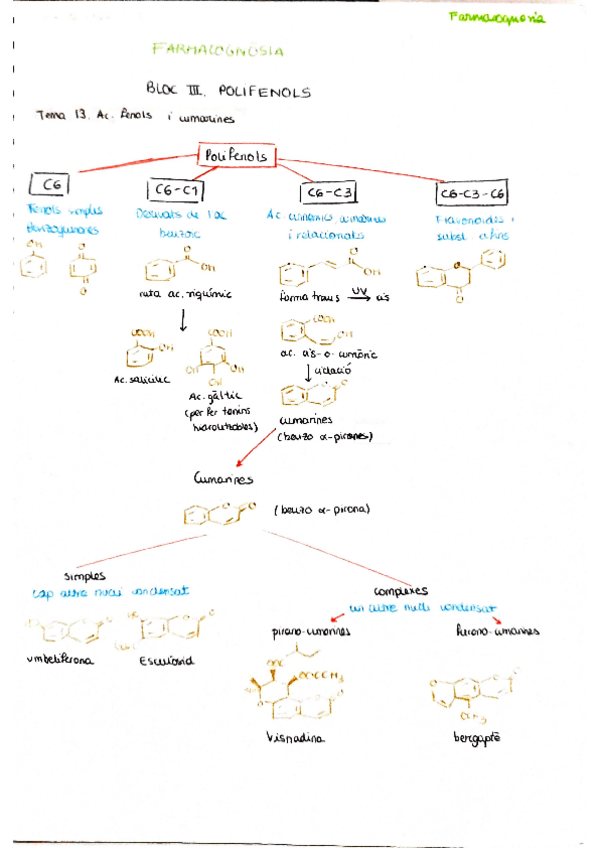 Farmacognosia
FARMACOGNÒSIA
BLOC III. POLIFENOLS
Tema 13. Ac. fenols i cumarines
Polifenols
C6
C6-C1
C6-C3
C6-C3-C6
Fenols simples
benzoquinones
Derivats de l'ac
benzoic
Ac. cinàmics, cumarines
i relacionats
Flavonoides i
subst. afins
OH
O
O
O
OH
O
OH
ruta ac. siquímic
forma trans UV cis
COOH
OH
Ac. salicílic
COOH
OH
OH
OH
Ac. gàl·lic
(per fer tanins
hidrolitzables)
COOH
OH
ac. cis-o-cumàric
ciclació
cumarines
(benzo α-pirones)
Cumarines
(benzo α-pirona)
simples
cap altre nucli condensat
umbeliferona
Esculòsid
complexes
un altre nucli condensat
pirano-cumarines
furano-cumarines
Visnadina
bergaptè